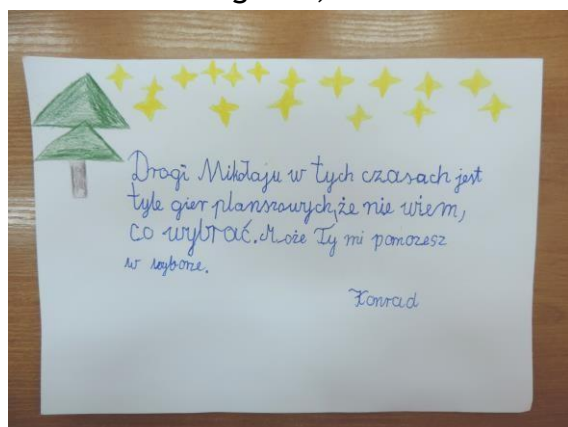 Drogi Mikołaju w tych czasach jest
tyle gier planszowych, że nie wiem,
co wybrać. Może Ty mi pomożesz
w wyborze.
Konrad